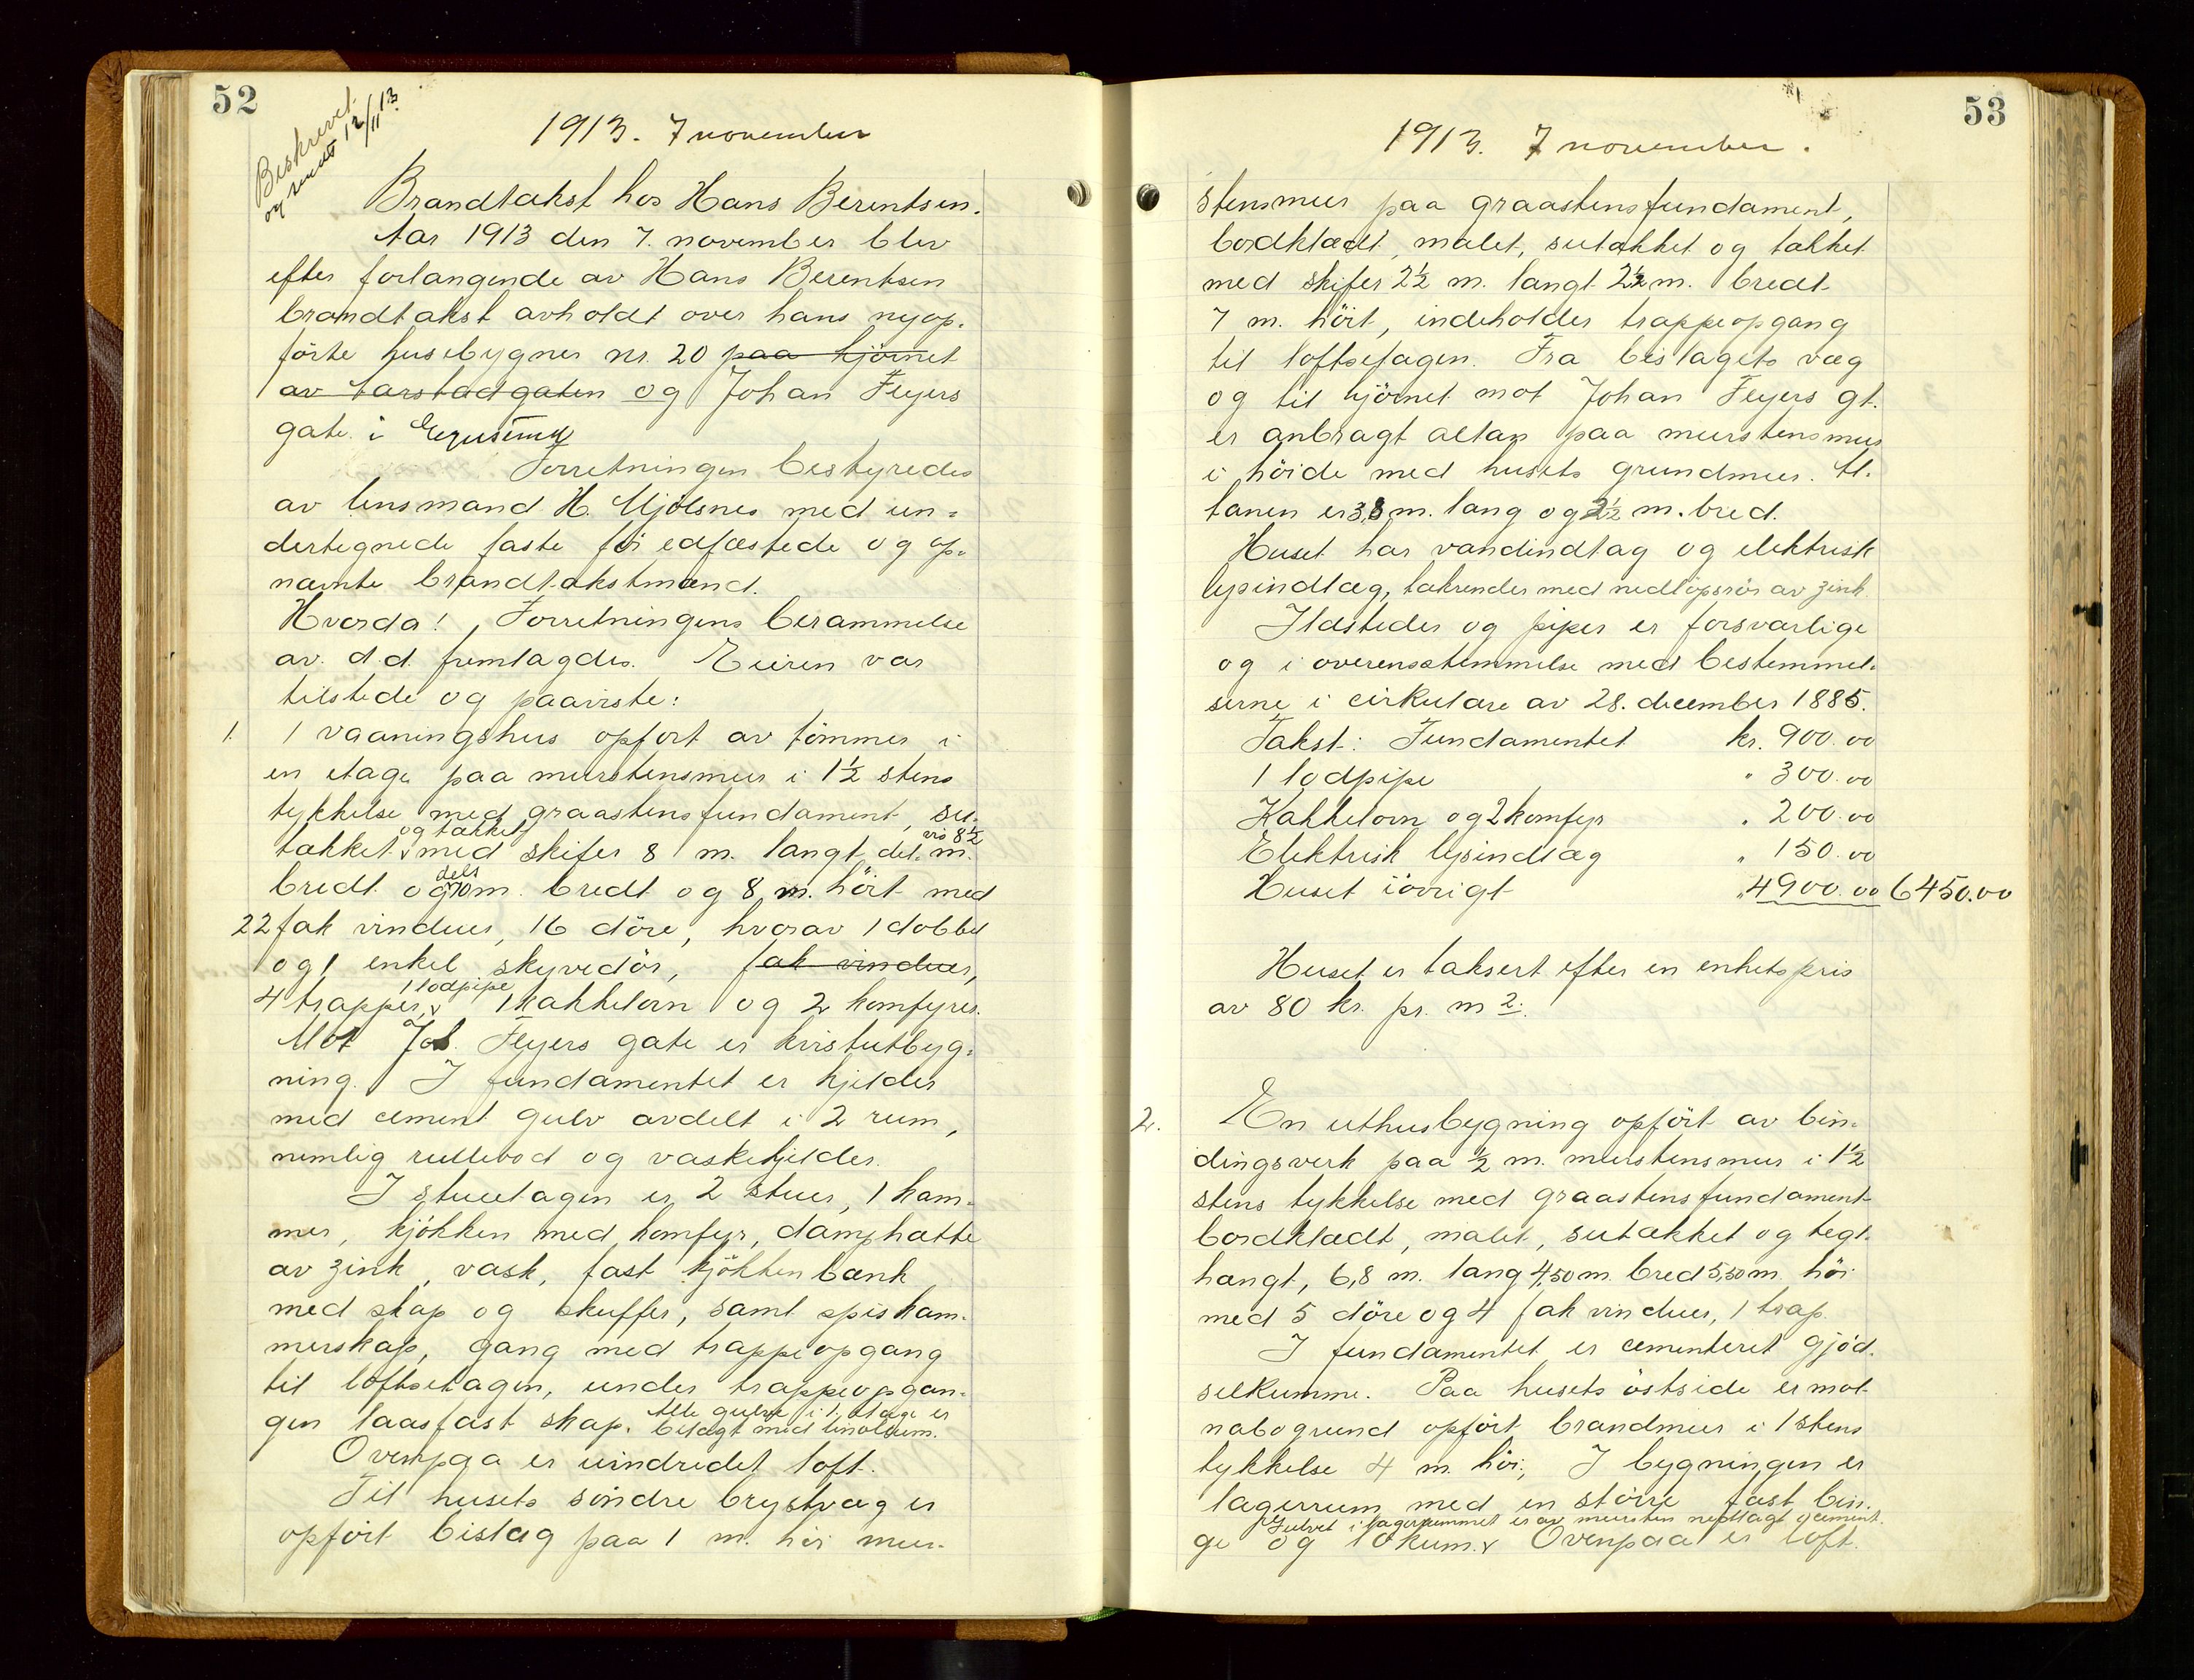 52
Beskrevet
og sendt 12/11 13.
1913. 7 november
Brandtakst hos Hans Berentsen.
Aar 1913 den 7. november blev
efter forlangende av Hans Berentsen
brandtakst avholdt over hans nyop-
förte husebygner nr. 20 paa hjörnet
av Aarstadgaten og Johan Feyers
gate i Egersund
Forretningen bestyredes
av lensmand H. Mjölsnes med un-
dertegnede faste før edfæstede og op-
nævnte brandtakstmænd.
Hvorda! Forretningens berammelse
av d.d. fremlagdes. Eieren var
tilstede og paaviste:
1. 1 vaaningshus opfort av tömmer i
en etage paa murstensmur i 1½ stens
tykkelse med graastensfundament, su-
og tækket
vis 8½
tækket med skifer 8 m. langt, del- m.
dels
bredt og 10 m. bredt og 8 m. höit med
22 fak vinduer, 16 döre, hvorav 1 dobbel
og 1 enkel skyvedör, fak vinduer,
1 lodpipe
4 trapper, 1 kakkelovn og 2 komfyrer.
Mot Joh. Feyers gate er kvistutbyg-
ning. I fundamentet er kjelder
med cement gulv avdelt i 2 rum,
nemlig rullebod og vaskekjelder.
I stueetagen er 2 stuer, 1 kam-
mer, kjökken med komfyr, damphætte
av zink, vask, fast kjökkenbænk
med skap og skuffer, samt spiskam-
merskap, gang med trappeopgang
til loftsetagen, under trappeopgan-
gen laasfast skap. Alle gulve i 1. etage er
belagt med linoleum.
Ovenpaa er uindredet loft.
Til husets söndre brystvæg er
opfört bislag paa 1 m. höi mur-
53
1913. 7 november.
stensmur paa graastensfundament,
bordklædt, malet, sutækket og tækket
med skifer 2½ m. langt 2½ m. bredt
7 m. höit, indeholder trappeopgang
til loftsetagen. Fra bislagets væg
og til hjörnet mot Johan Feyers gt.
er anbragt altan paa murstensmur
i höide med husets grundmur. Al-
tanen er 3,8 m. lang og 2½ m. bred.
Huset har vandindlag og elektrisk
lysindlæg, takrender med nedlöpsrör av zink.
Ildsteder og piper er forsvarlige
og i overensstemmelse med bestemmel-
serne i cirkulære av 28. december 1885.
Takst: Fundamentet kr. 900.00
1 lodpipe " 300.00
Kakkelovn og 2 komfyr " 200.00
Elektrisk lysindlæg " 150.00
Huset iövrigt " 4900.00 6450.00
Huset er taksert efter en enhetspris
av 80 kr. pr. m 2.
2. En uthusbygning opfört av bin-
dingsverk paa ½ m. murstensmur i 1½
stens tykkelse med graastensfundament
bordklædt, malet, sutækket og tegl-
hængt, 6,8 m. lang 4,50 m. bred 5,50 m. höi
med 5 döre og 4 fak vinduer, 1 trap.
I fundamentet er cementeret gjöd-
selkumme. Paa husets östside er mot
nabogrund opfört brandmur i 1 stens
tykkelse 4 m. höi; I bygningen er
lagerrum med en större fast bin-
Gulvet i lagerrummet er av mursten nedlagt i cement.
ge og lokum. Ovenpaa er loft.